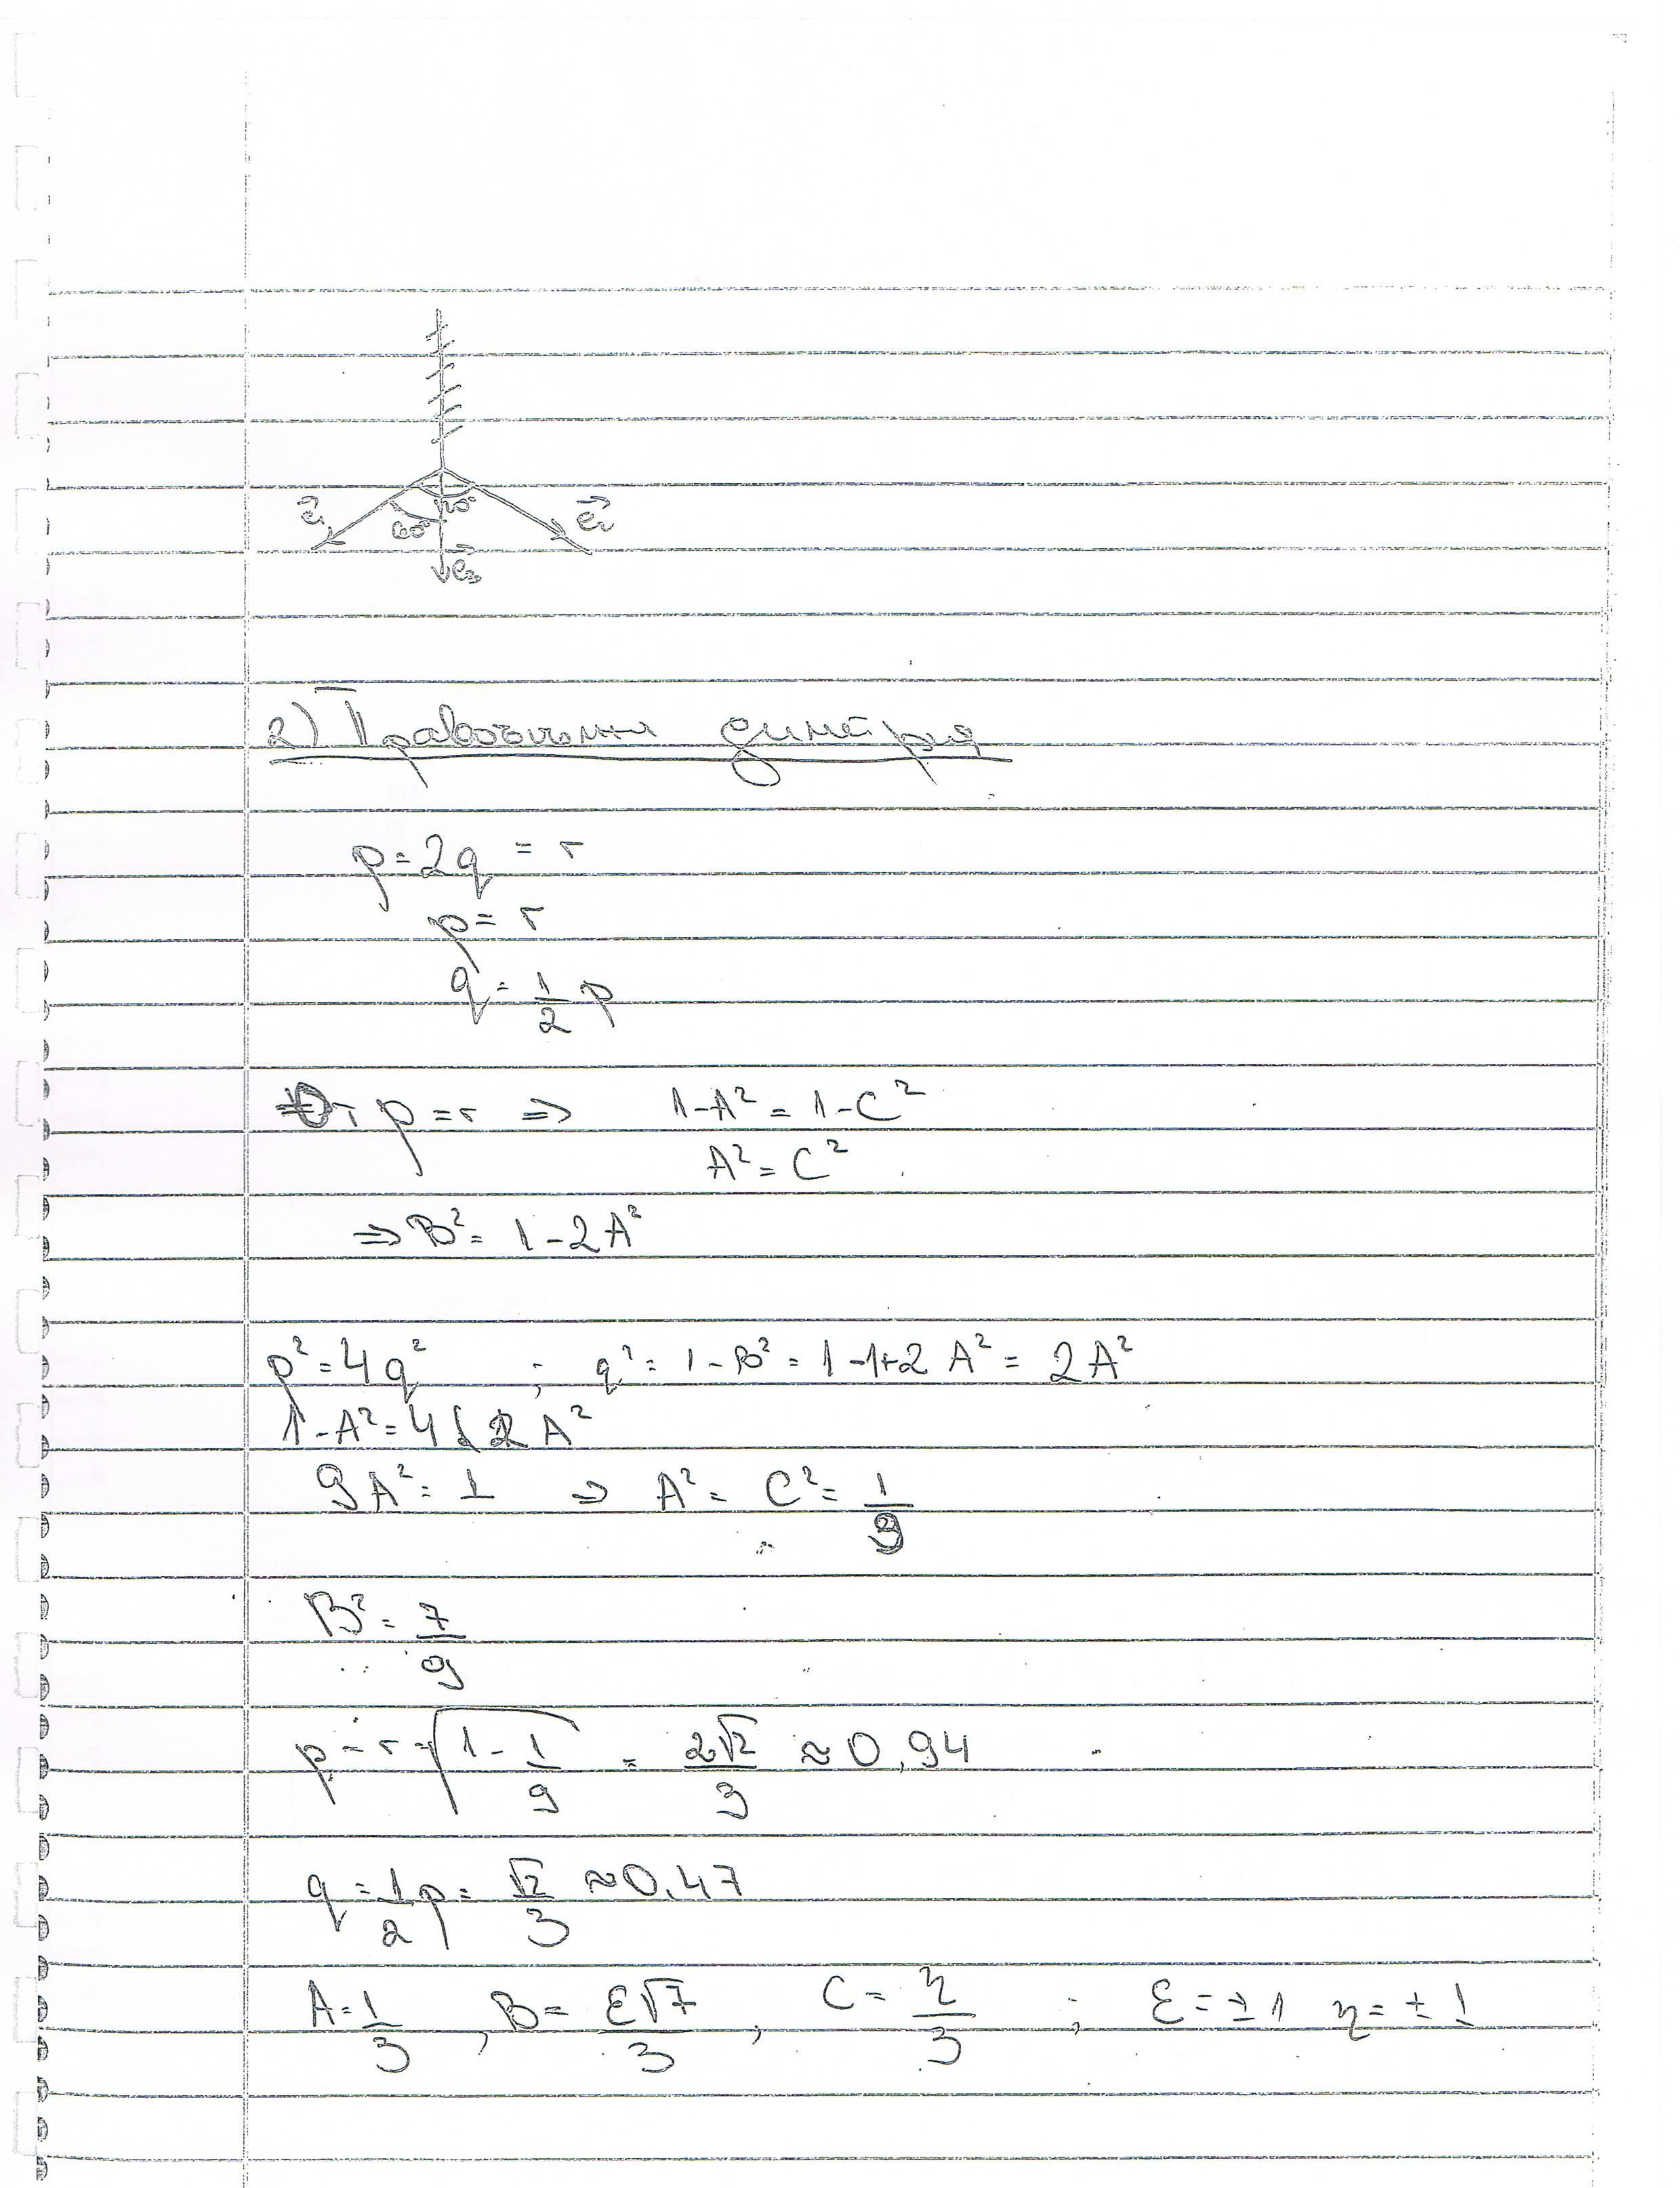 e⃗₁ 60° 120° e⃗₂
e⃗₃
2) Правоъгълна диметрия
p = 2q = r
p = r
q = 1/2 p
От p = r ⇒ 1-A² = 1-C²
A² = C²
⇒ B² = 1-2A²
p² = 4q² ; q² = 1-B² = 1-1+2A² = 2A²
1-A² = 4.2A²
9A² = 1 ⇒ A² = C² = 1/9
B² = 7/9
p = r = √(1 - 1/9) = 2√2/3 ≈ 0,94
q = 1/2 p = √2/3 ≈ 0,47
A = 1/3, B = ε√7/3, C = η/3 ; ε = ±1 η = ±1